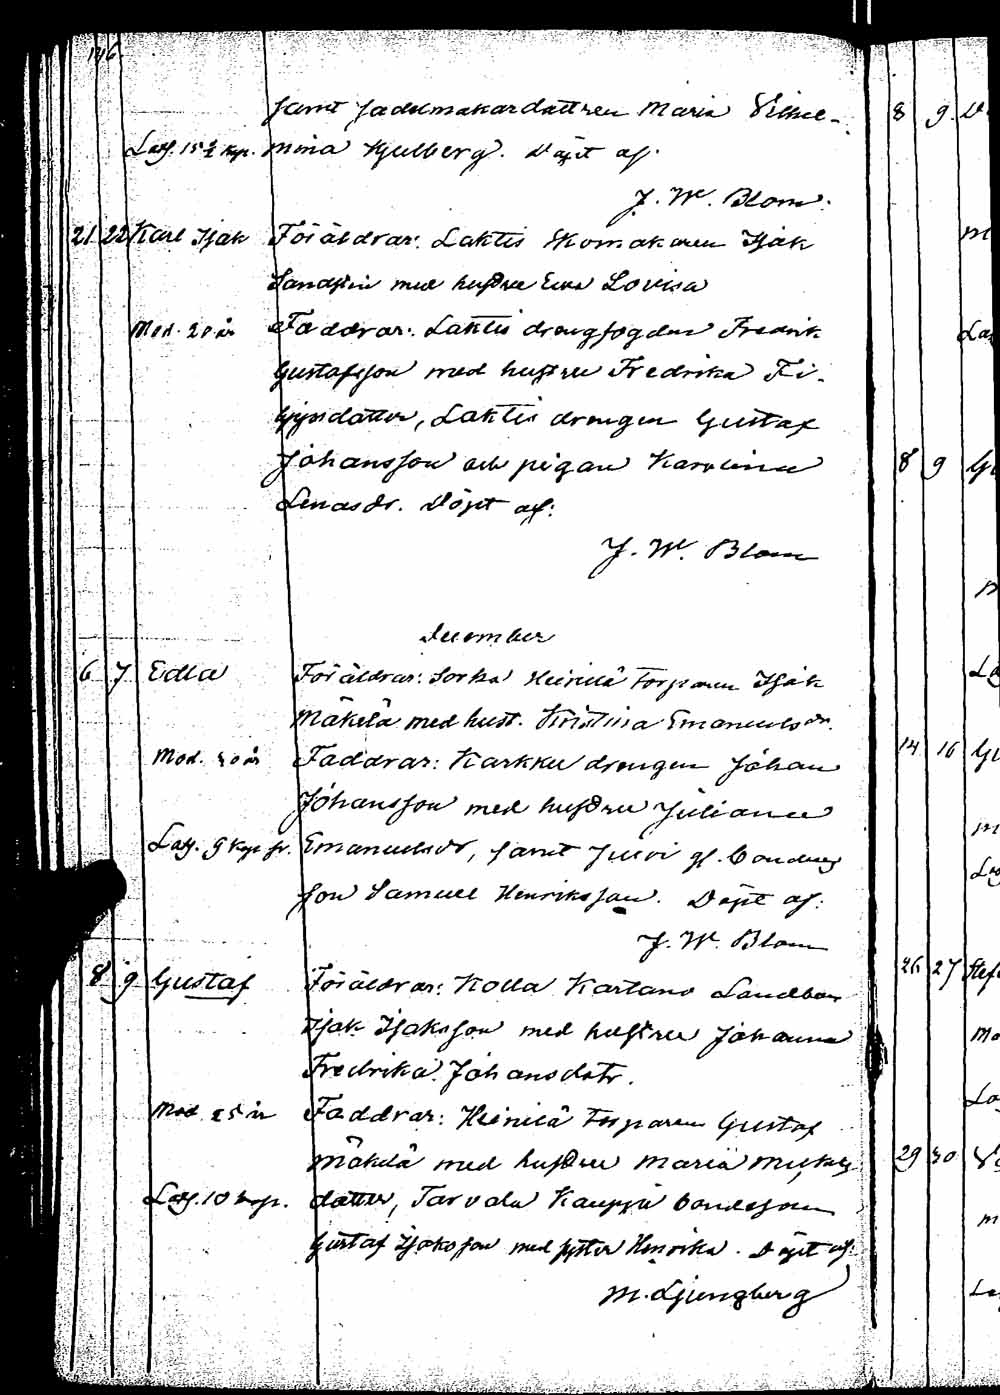 146
samt sadelmakardattren Maria Vilhel-
Lasg. 15½ kop. mina Kjulberg. Döpt af:
J. W. Blom.
21 22 Karl Isak Föräldrar: Laktis Skomakaren Isak
Sandstén med hustru Eva Lovisa
Mod. 20 år Faddrar: Laktis drengfogden Fredrik
Gustafsson med hustru Fredrika Fi-
lipsdatter, Laktis drengen Gustaf
Johansson och pigan Karolina
Lenasdr. Döpt af:
J. W. Blom
December
6 7 Edla Föräldrar: Sorka Heinilä Torparen Isak
Mäkelä med hust. Kristina Emanuelsdr.
Mod. 30 år Faddrar: Karkku drengen Johan
Johansson med hustru Juliana
Lasg. 9 kop sr. Emanuelsdr, samt Juvi gl. bonden
son Samuel Henriksson. Döpt af:
J. W. Blom
8 9 Gustaf Föräldrar: Kolla Kartano Landbon
Isak Isaksson med hustru Johanna
Fredrika Johansdotr.
Mod 25 år Faddrar: Heinilä Torparen Gustaf
Mäkelä med hustru Maria
Lasg. 10 kop. datter, Tarvola Kauppi bondeson
Gustaf Isaksson med syster Henrika. Döpt af:
M. Ljungberg
8 9
8 9 Gu
14 16
26 27 Stef
29 30